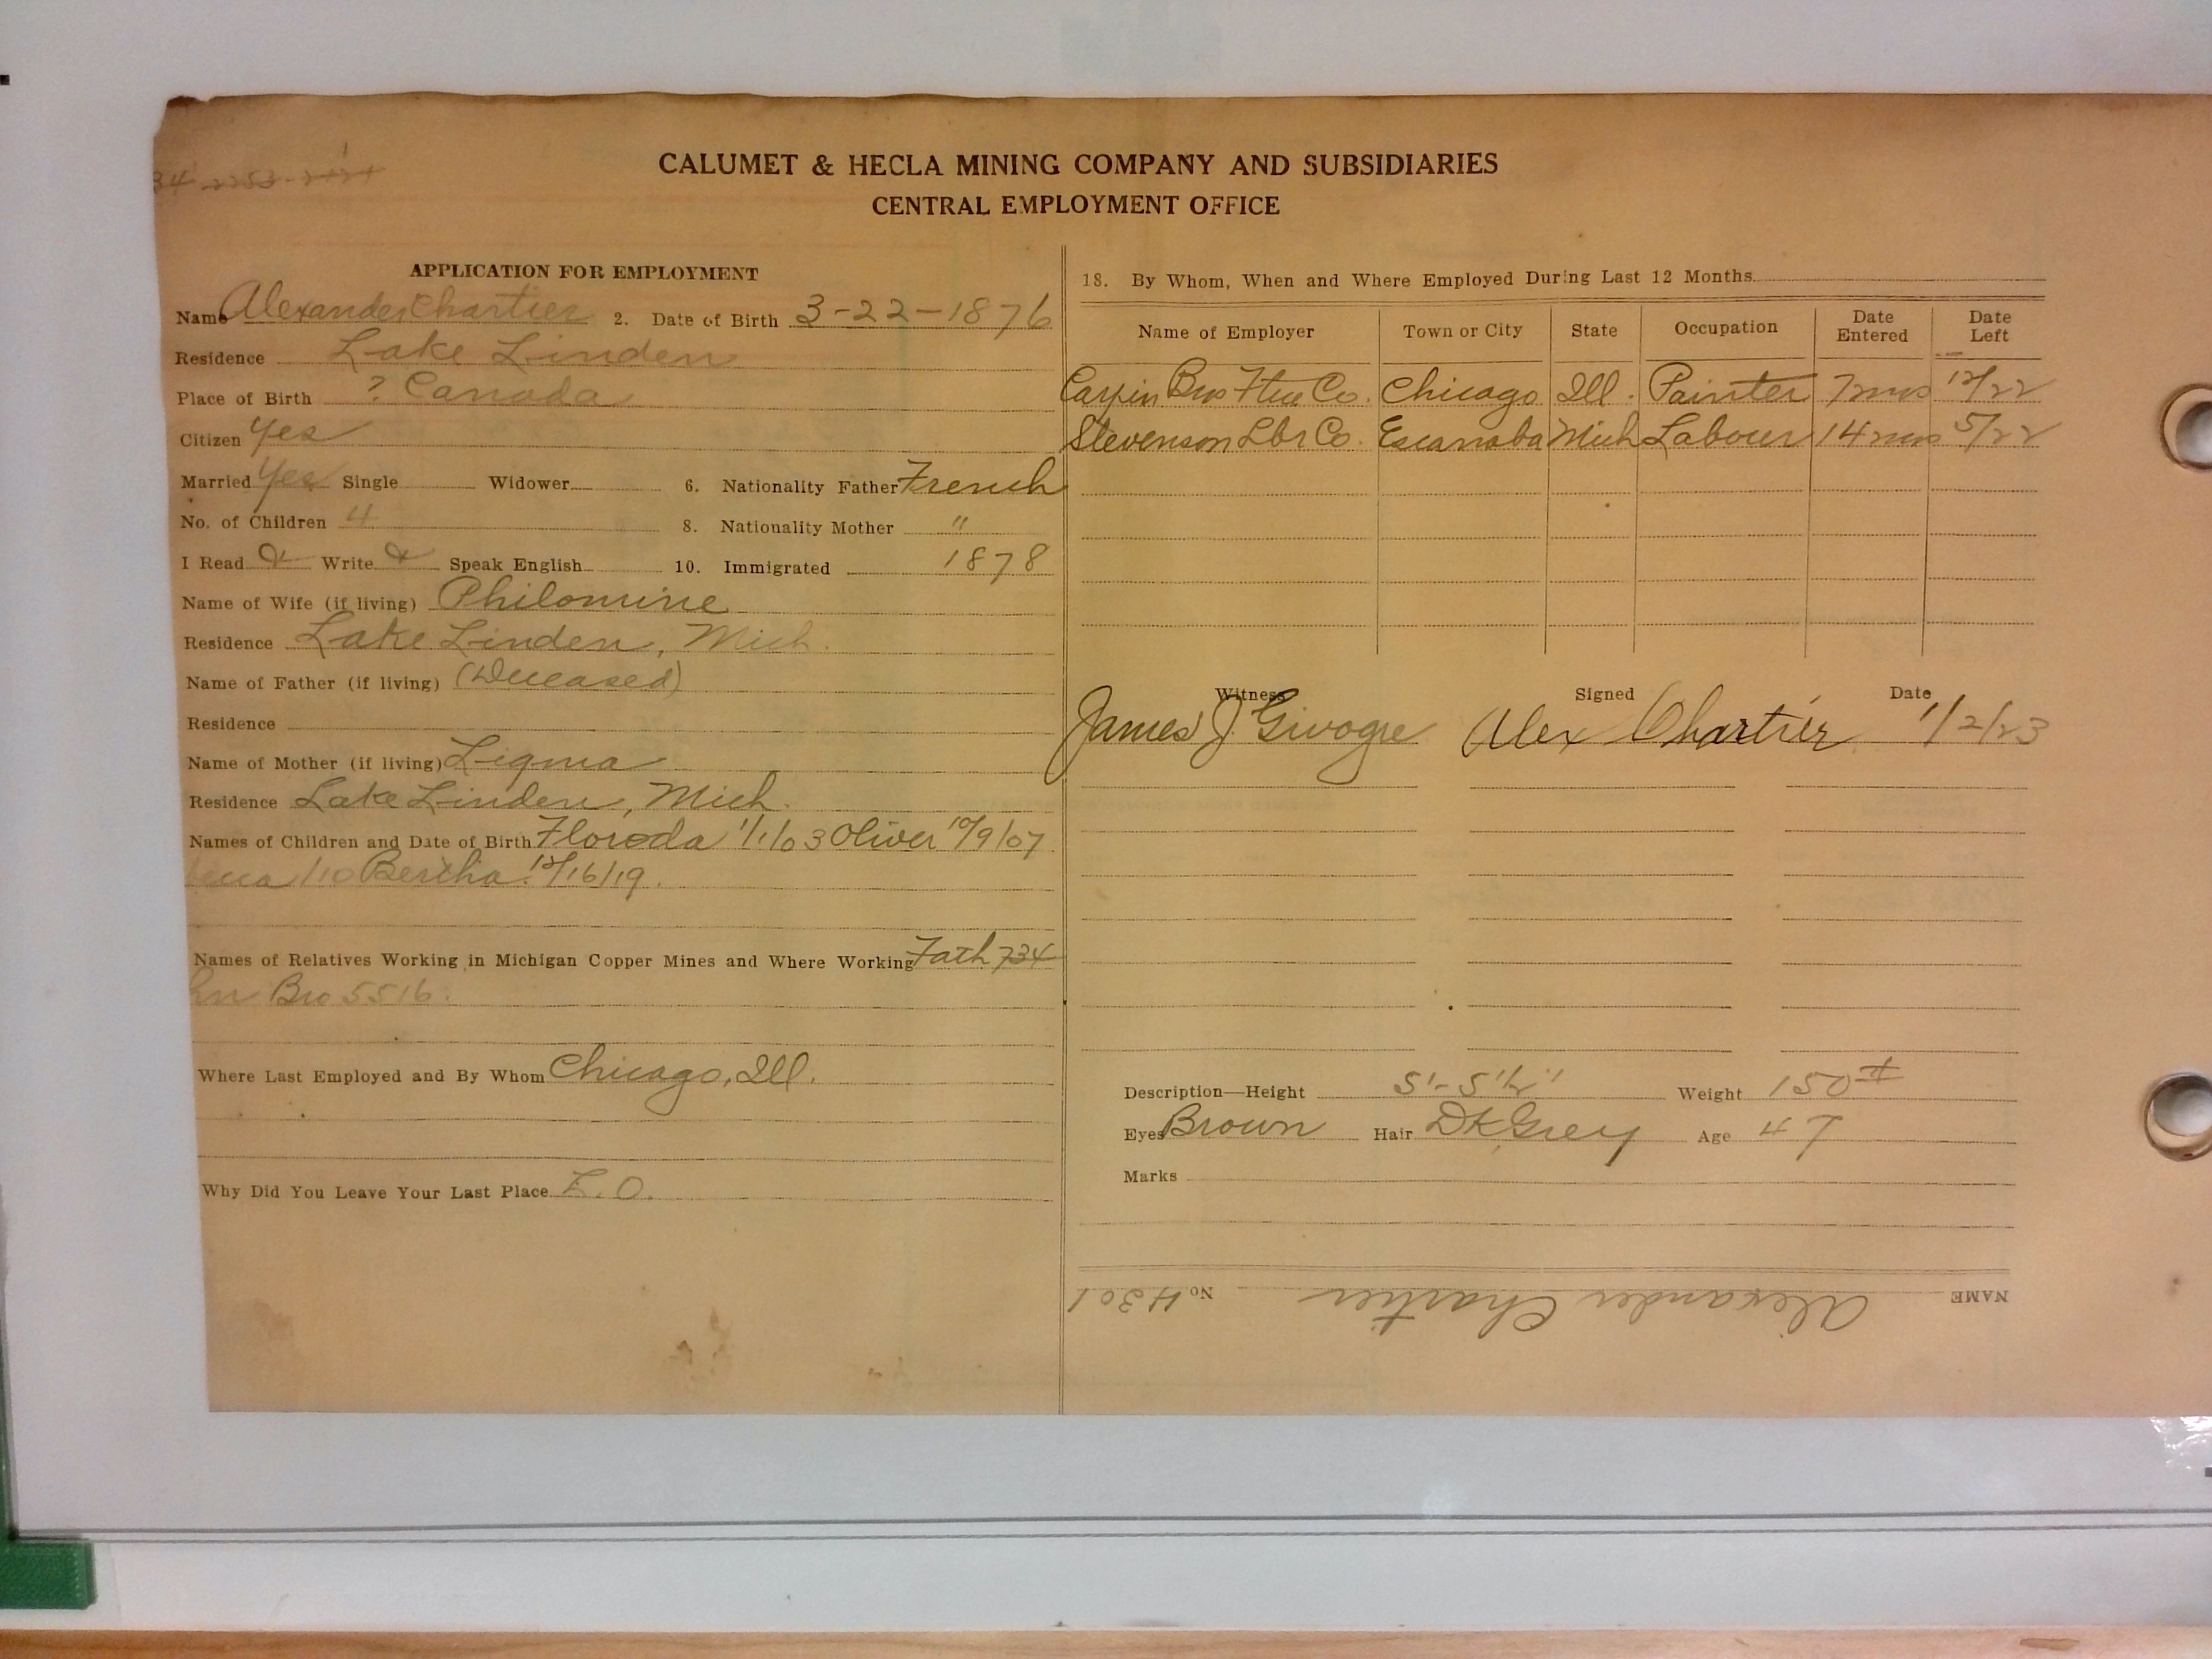 CALUMET & HECLA MINING COMPANY AND SUBSIDIARIES
CENTRAL EMPLOYMENT OFFICE
APPLICATION FOR EMPLOYMENT
Name Alexander Chartier 2. Date of Birth 3-22-1876
Residence Lake Linden
Place of Birth ? Canada
Citizen Yes
Married Yes Single Widower 6. Nationality Father French
No. of Children 4 8. Nationality Mother "
I Read Write Speak English 10. Immigrated 1878
Name of Wife (if living) Philomine
Residence Lake Linden, Mich.
Name of Father (if living) (Deceased)
Residence
Name of Mother (if living) Ligma
Residence Lake Linden, Mich.
Names of Children and Date of Birth Floroda 1/1/03 Oliver 10/9/07
/10 Bertha 12/16/19.
Names of Relatives Working in Michigan Copper Mines and Where Working Fath 734
Bro 5516.
Where Last Employed and By Whom Chicago, Ill.
Why Did You Leave Your Last Place L.O.
18. By Whom, When and Where Employed During Last 12 Months
Name of Employer Town or City State Occupation Date Entered Date Left
Bros Co. Chicago Ill. Painter 7mos 12/22
Stevenson Lbr Co. Escanaba Mich Labour 14mos 5/22
Witness Signed Date
James J. Givogre Alex Chartier 1/2/23
Description—Height 5'-5½" Weight 150#
Eyes Brown Hair Dk Grey Age 47
Marks
NAME Alexander Chartier No. 4301